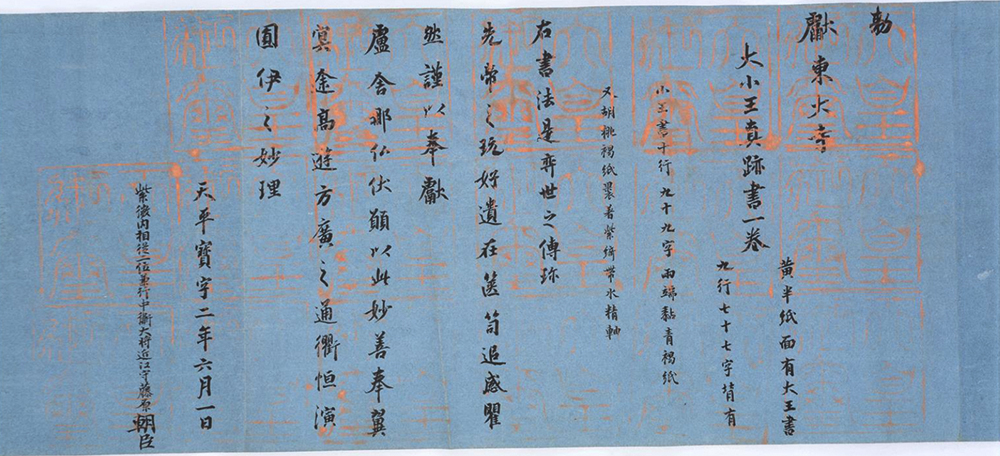 勅
獻東大寺
大小王真跡書一卷
黃半紙面有大王書
九行七十七字背有
小王書十行九十九字兩端黏青褐紙
又胡桃褐紙裹着紫綺帶水精軸
右書法是弈世之傳珎
先帝之玩好遺在篋笥追感瞿
然謹以奉獻
盧舍那仏伏願以此妙善奉翼
冥途高遊方廣之通衢恒演
圓伊之妙理
天平寶字二年六月一日
紫微內相從二位兼行中衛大将近江守藤原朝臣